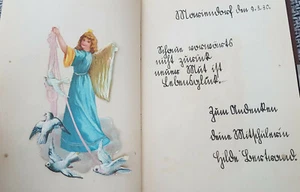 Mariendorf den 9.2.40.
Schaue vorwärts
nicht zurück
neuer Mut ist
Lebensglück.
Zum Andenken
deine Mitschülerin
Hilde